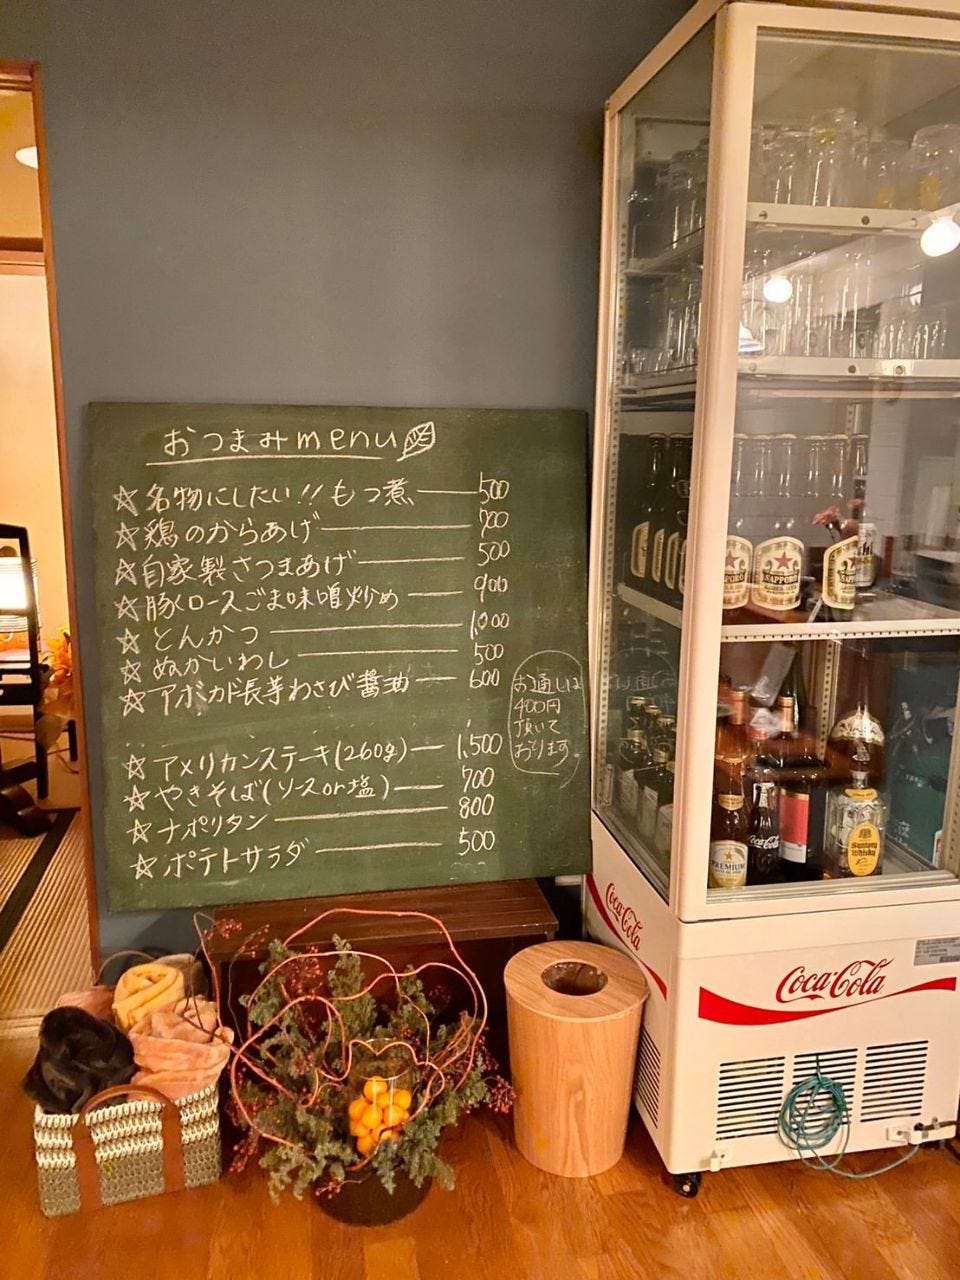 おつまみmenu
☆名物にしたい!!もつ煮 500
☆鶏のからあげ 700
☆自家製さつまあげ 500
☆豚ロースごま味噌炒め 900
☆とんかつ 1,000
☆ぬかいわし 500
☆アボカド長芋わさび醤油 600
☆アメリカンステーキ(260g) 1,500
☆やきそば(ソースor塩) 700
☆ナポリタン 800
☆ポテトサラダ 500
お通しは
400円
頂いて
おります。
SAPPORO
SAPPORO
Asahi
PREMIUM
Coca-Cola
Suntory
Whisky
Coca-Cola
Coca-Cola